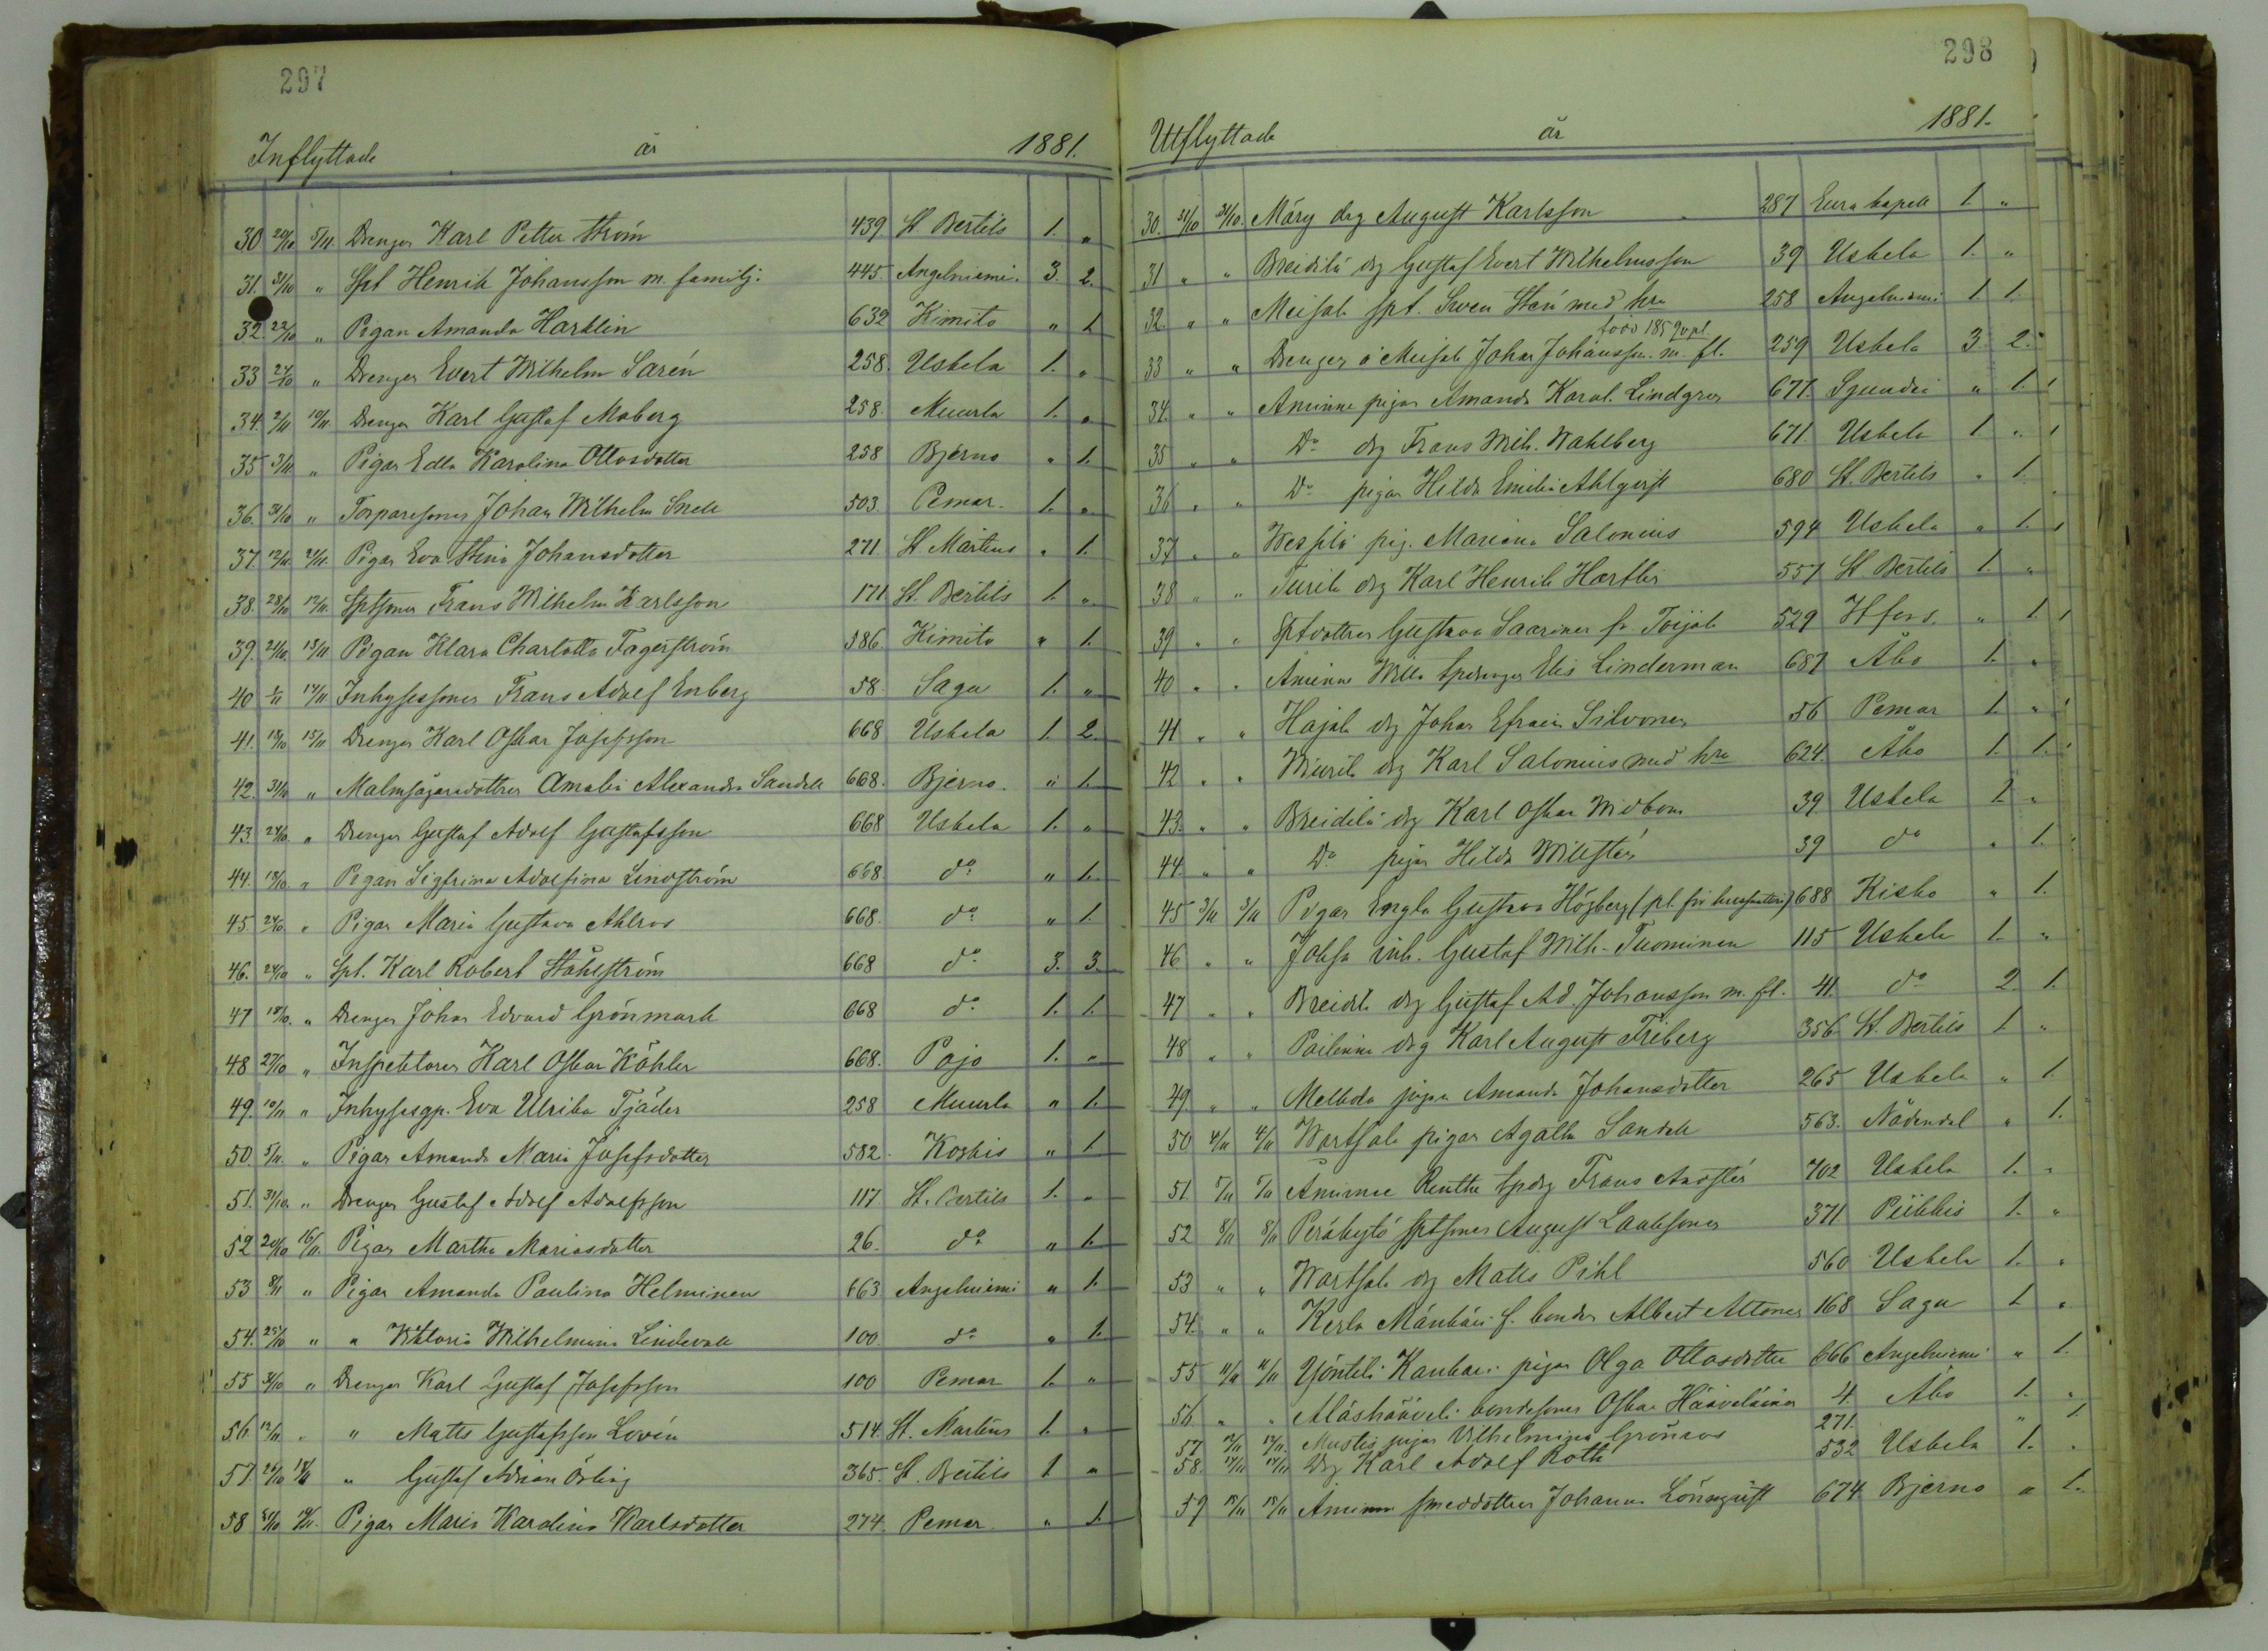 297
Inflyttade år 1881.
30 20/10 5/11 Drengen Karl Petter Ström 439 St Bertils 1. "
31. 31/10 " Spt Henrik Johansson m. familj. 445 Angelniemi. 3. 2.
32. 22/10 " Pigan Amanda Harklin 632 Kimito " 1
33 24/10 " Drengen Evert Wilhelm Sarén 258. Uskela 1. "
34. 2/11 10/11. Drengen Karl Gustaf Moberg 258. Muurla 1. "
35 3/11 " Pigan Edla Karolina Ottosdotter 258 Bjerno " 1.
36. 31/10 " Torparesonen Johan Wilhelm Snell 503. Pemar. 1. "
37. 12/11. Pigan Eva Stina Johansdotter 271 St Martens " 1.
38. 28/10 12/11. Sptsonen Frans Wilhelm Karlsson 171 St. Bertils 1. "
39. 24/10. 13/11 Pigan Klara Charlotta Fagerström 386. Kimito " 1.
40 14/11 Inhysessonen Frans Adolf Enberg 58. Sagu 1. "
41. 18/10 15/11 Drengen Karl Oskar Josefsson 668 Uskela 1. 2.
42. 31/10 " Malmsägaredottren Amalia Alexandra Sandell 668. Bjerno. " 1.
43. 24/10. " Drengen Gustaf Adolf Gustafsson 668 Uskela 1. "
44. 18/10 " Pigan Sigfrina Adolfina Lindström 668. do " 1.
45. 24/10 " Pigan Maria Gustava Ahlros 668. do " 1.
46. 24/10 " Spt. Karl Robert Ståhlström 668 do 3. 3.
47 18/10. " Drengen Johan Edvard Grönmark 668 do 1. 1.
48 27/10 " Inspektoren Karl Oskar Köhler 668. Pojo 1. "
49. 10/11 " Inhysesgp. Eva Ulrika Tjäder 258 Muurla " 1.
50. 5/11. " Pigan Amanda Maria Josefsdotter 582. Koskis " 1
51. 31/10. " Drengen Gustaf Adolf Adolfsson 117 St. Bertils 1. "
52 20/10 16/11. Pigan Martha Mariasdotter 26. do " 1.
53 8/11 " Pigan Amanda Paulina Helminen 663 Angelniemi " 1.
54. 25/10 " " Viktoria Wilhelmina Lindevall 100. do " 1.
55 31/10 " Drengen Karl Gustaf Josefsson 100 Pemar 1. "
56. 12/11 " " Matts Gustafsson Lovén 514. St. Martens 1. "
57. 24/10 18/11 " Gustaf Adrian Östling 365. St. Bertils 1 "
58 19/11. Pigan Maria Karolina Karlsdotter 274. Pemar " 1.
298
Utflyttade år 1881.
30. 31/10 31/10. Märy drg August Karlsson 287 Eura kapell 1. "
31 " " Breidilä drg Gustaf Evert Wilhelmsson 39 Uskela 1. "
32. " " Meisala spt. Sven Sten med hru 258 Angelniemi 1. 1.
33 " " Drengen å Meisala Johan Johansson m. fl. 259 Uskela 3. 2.
34. " " Åminne pigan Amanda Karol. Lindgren 677. Sjundeå " 1.
35 " " Do drg Frans Wilh. Wahlberg 671 Uskela 1. "
36 " " Do pigan Hilda Emilia Ahlqvist 680 St. Bertils " 1
37 " " Vessilä pig. Mariana Salonius 594 Uskela " 1.
38 " " Turila drg Karl Henrik Hartlin 557 St Bertils 1. "
39 " " Sptdottren Gustava Saarinen fr. Toijala 529 Hfors. " 1.
40 " " Åminne Willa tpdrengen Elis Linderman 687 Åbo 1. "
41 " " Hajala drg Johan Efraim Silvonen 56 Pemar 1. "
42 " " Wiurila drg Karl Salonius med hru 624. Åbo 1. 1.
43. " " Breidilä drg Karl Oskar Widbom 39 Uskela 1. "
44. " " Do pigan Hilda Willstén 39 do " 1.
45 3/11 3/11 Pigan Engla Gustava Högberg 688 Kisko " 1.
46 " " Joksa inh. Gustaf Wilh. Tuominen 115 Uskela 1. "
47 " " Breidilä drg Gustaf Ad. Johansson m. fl. 41. do 2 1
48 " " Pailinna drg Karl August Friberg 356 St. Bertils 1. "
49 " " Melkola pigan Amanda Johansdotter 265 Uskela " 1
50 4/11 4/11 Wartsala pigan Agatha Sandell 563. Nådendal " 1.
51. 7/11 7/11 Åminne Renttu tpdrg Frans Anstén 702 Uskela 1. "
52 8/11 8/11 Peräkylä sptsonen August Laaksonen 371 Piikkis 1. "
53 " " Wartsala drg Matts Pihl 560 Uskela 1. "
54. " " Kerla Mánkäri f. bonden Albert Altonen 168 Sagu 1 "
55 11/11 11/11 Yöntilä Kankari pigan Olga Ottosdotter 666 Angelniemi " 1.
56 " " Alåshäoveli bondesonen Oskar 4. Åbo 1. "
57 12/11 12/11. Mustis pigan Vilhelmina Grönroos 271. " 1
58. 17/11 17/11 Drg Karl Adolf Roth 532 Uskela 1. "
59 18/11 18/11 Åminne smeddottren Johanna Lönnqvist 674 Bjerno " 1.